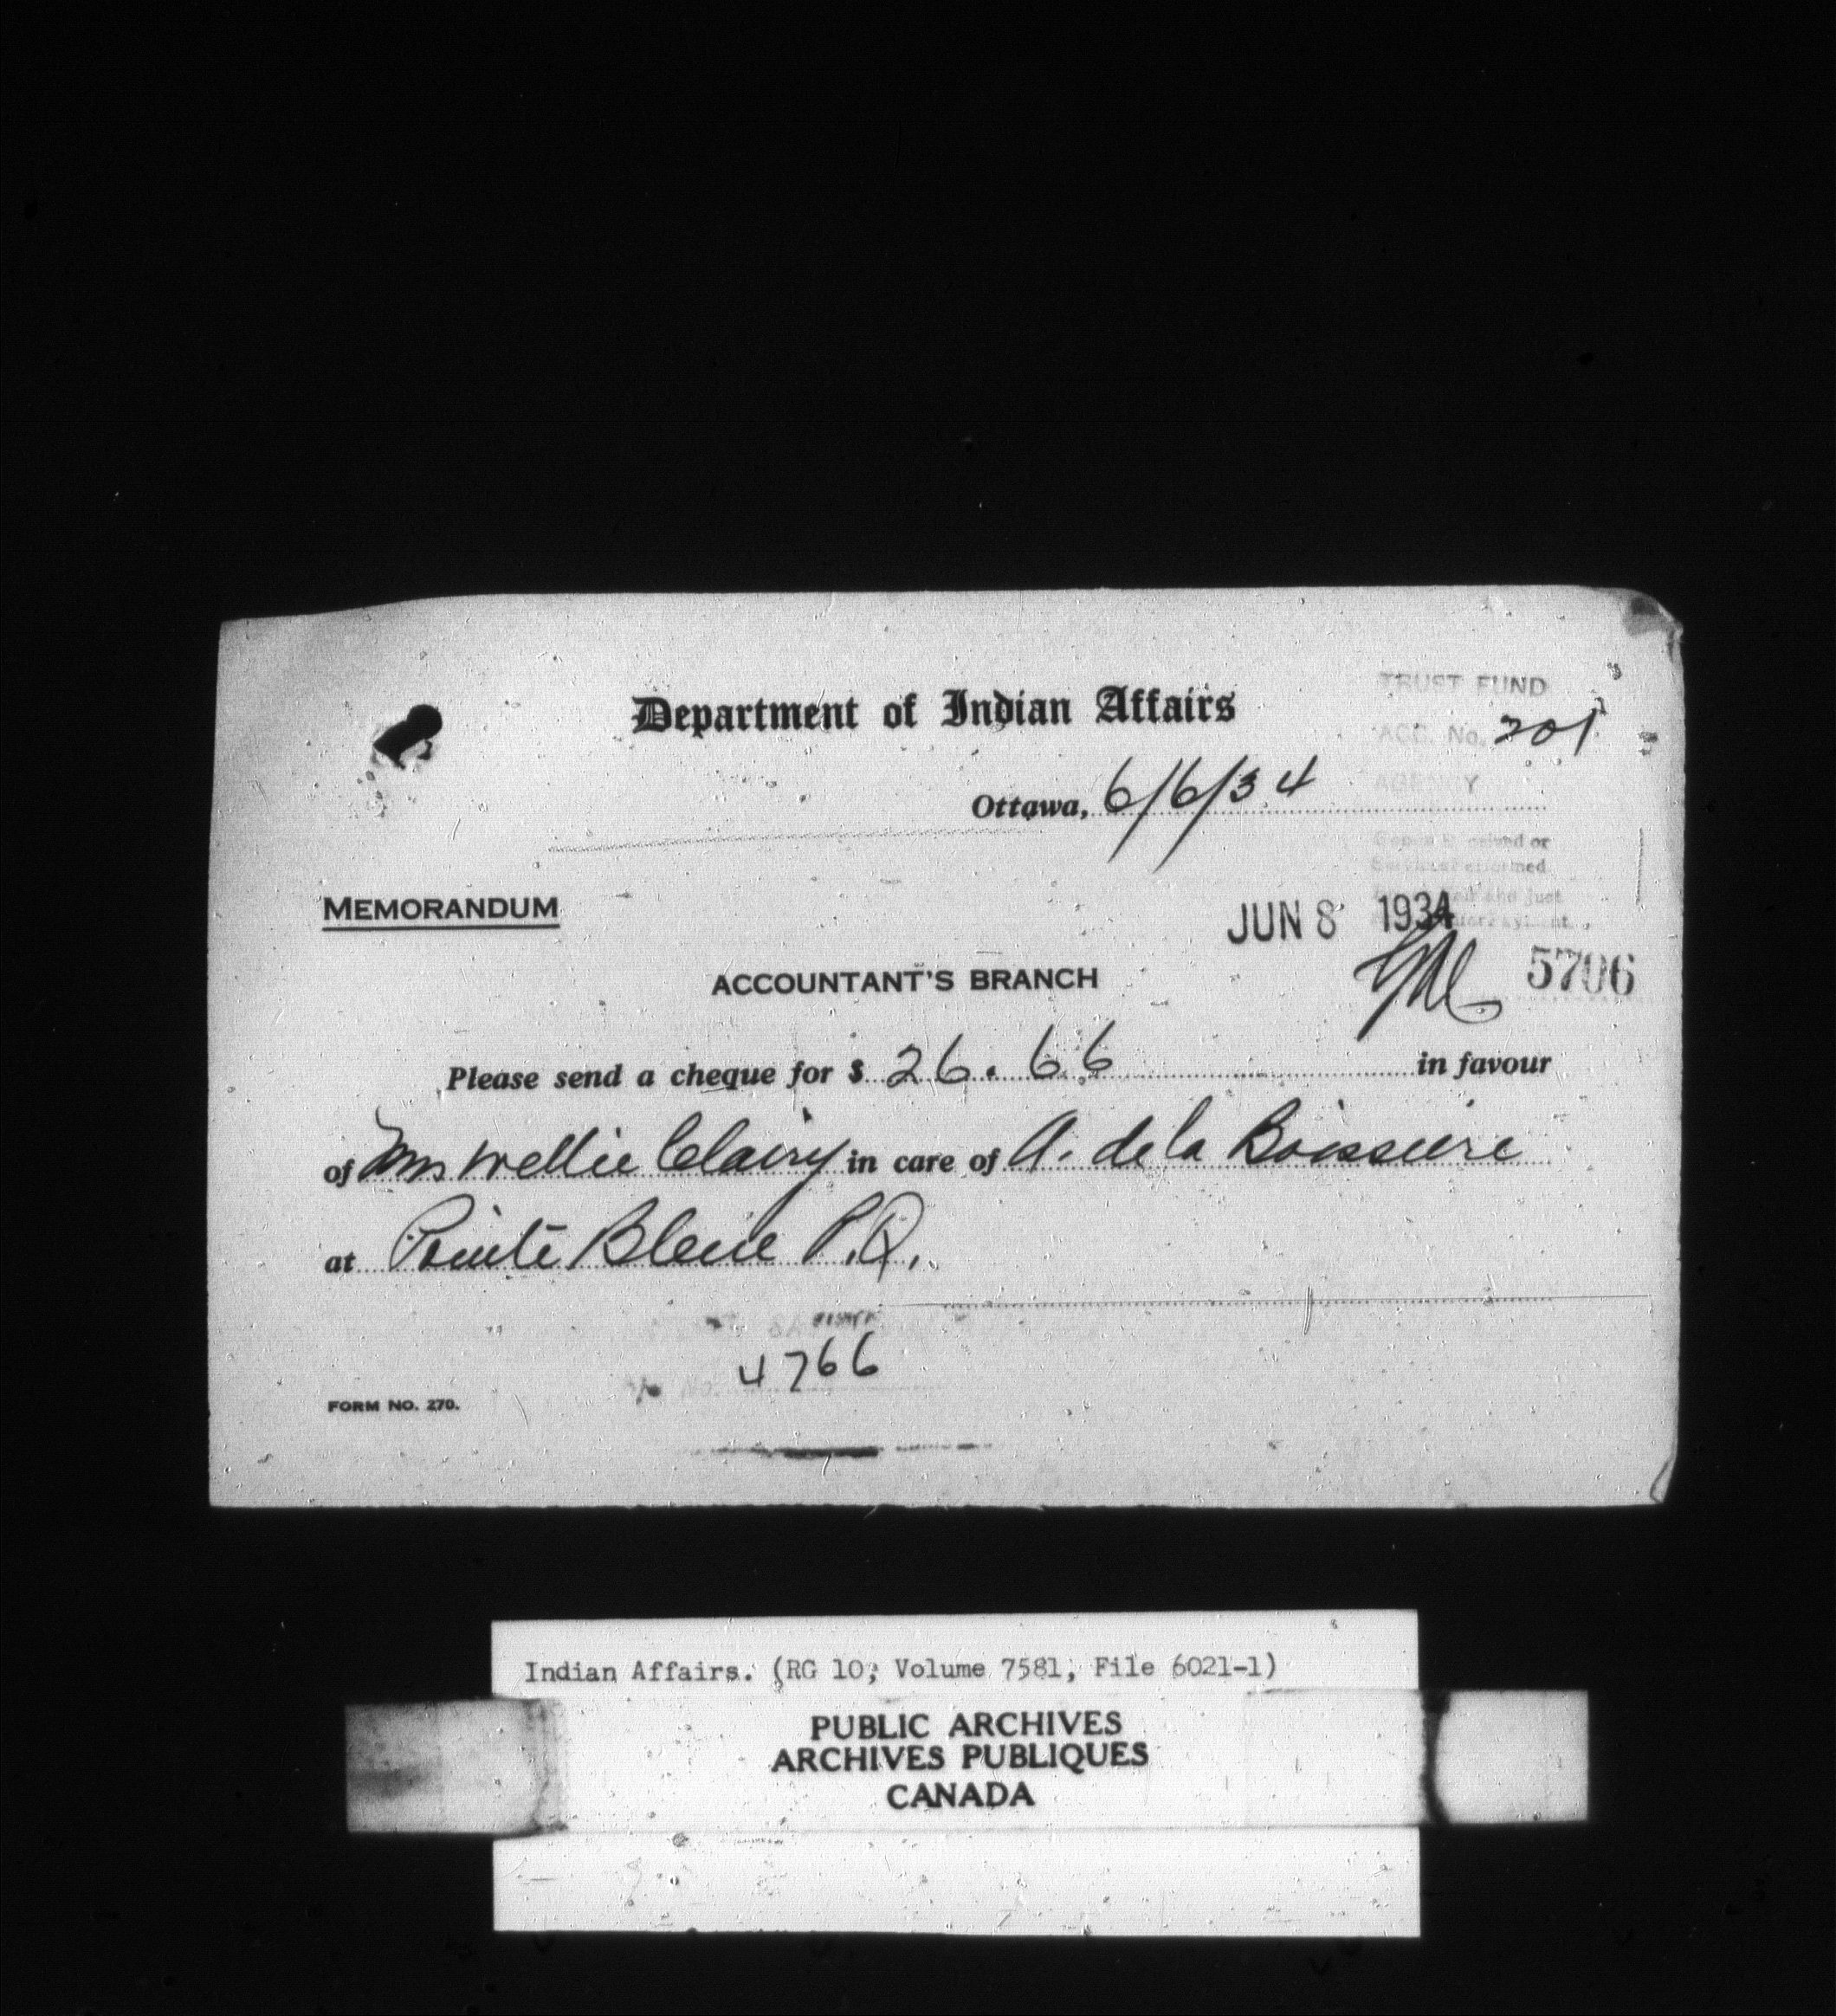 TRUST FUND
Department of Indian Affairs
ACC. No. 201
AGENCY
Ottawa, 6/6/34
or
Services Performed
and just
MEMORANDUM
JUN 8 1934
5706
ACCOUNTANT'S BRANCH
Please send a cheque for $ 26.66 in favour
of Mrs Wellie Clairy in care of A. de la Boissiere
at Pointe Bleue P.Q.
4766
No.
FORM NO. 270.
Indian Affairs. (RG 10, Volume 7581, File 6021-1)
PUBLIC ARCHIVES
ARCHIVES PUBLIQUES
CANADA